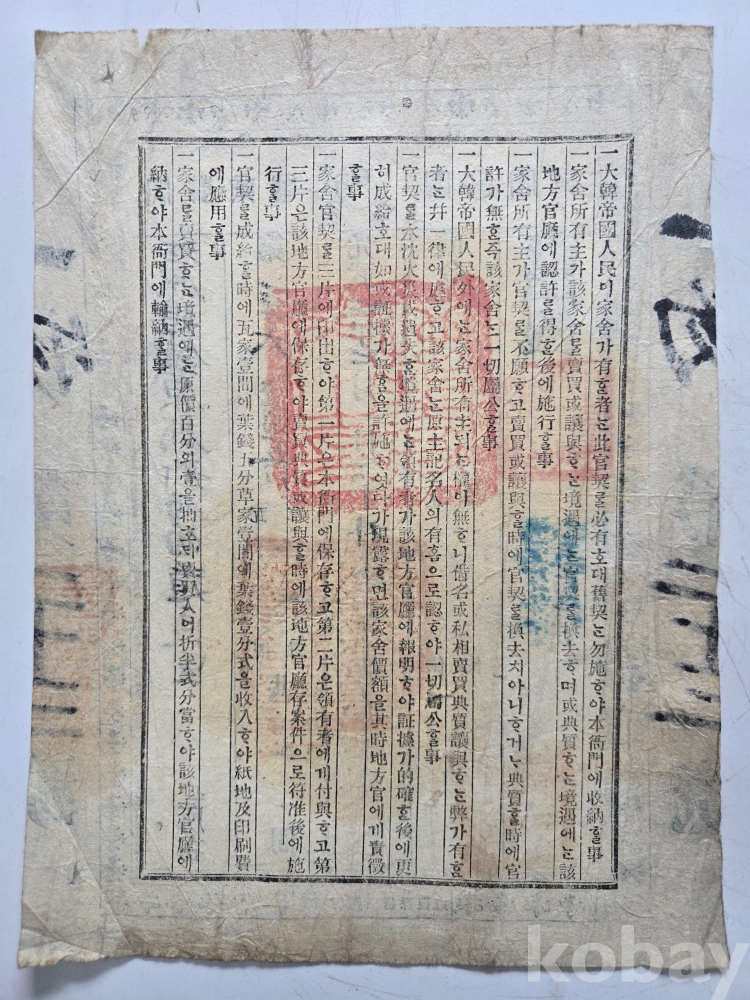 一大韓帝國人民이家舍가有ᄒᆞᆫ者ᄂᆞᆫ此官契를必有호ᄃᆡ舊契ᄂᆞᆫ勿施ᄒᆞ야本衙門에收納ᄒᆞᆯ事
一家舍所有主가該家舍를賣買或讓與ᄒᆞᄂᆞᆫ境遇에ᄂᆞᆫ官契를換去ᄒᆞ며或典質ᄒᆞᄂᆞᆫ境遇에ᄂᆞᆫ該
地方官廳에認許를得ᄒᆞᆫ後에施行ᄒᆞᆯ事
一家舍所有主가官契를不願ᄒᆞ고賣買或讓與ᄒᆞᆯ時에官契를換去치아니ᄒᆞ거ᄂᆞ典質ᄒᆞᆯ時에官
許가無ᄒᆞᆫ즉該家舍ᄂᆞᆫ一切屬公ᄒᆞᆯ事
一大韓帝國人民外에ᄂᆞᆫ家舍所有主되ᄂᆞᆫ權이無ᄒᆞ니借名或私相賣買典質讓與ᄒᆞᄂᆞᆫ弊가有ᄒᆞᆫ
者ᄂᆞᆫ幷一律에處ᄒᆞ고該家舍ᄂᆞᆫ原主記名人의有ᄒᆞᆷ으로認ᄒᆞ야一切屬公ᄒᆞᆯ事
一官契를水沈火燒或遺失ᄒᆞᆫ境遇에ᄂᆞᆫ領有者가該地方官廳에報明ᄒᆞ야証據가的確ᄒᆞᆫ後에更
히成給호ᄃᆡ如或証據가無ᄒᆞᆷ을許施ᄒᆞ엿다가現露ᄒᆞ면該家舍價額을其時地方官에게責徵
ᄒᆞᆯ事
一家舍官契를三片에印出ᄒᆞ야第一片은本衙門에保存ᄒᆞ고第二片은領有者에게付與ᄒᆞ고第
三片은該地方官廳에保存ᄒᆞ야賣買典質或讓與ᄒᆞᆯ時에該地方官廳存案件으로符准後에施
行ᄒᆞᆯ事
一官契를成給ᄒᆞᆯ時에瓦家壹間에葉錢五分草家壹間에葉錢壹分式을收入ᄒᆞ야紙地及印刷費
에應用ᄒᆞᆯ事
一家舍를賣買ᄒᆞᄂᆞᆫ境遇에ᄂᆞᆫ原價百分의壹을抽호ᄃᆡ賣買人이折半式分當ᄒᆞ야該地方官廳에
納ᄒᆞ야本衙門에輸納ᄒᆞᆯ事
kobay